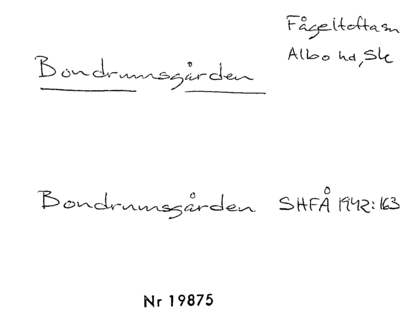 Fågeltofta sn
Albo hd, Sk
Bondrumsgården
Bondrumsgården SHFÅ 1942:163
Nr 19875